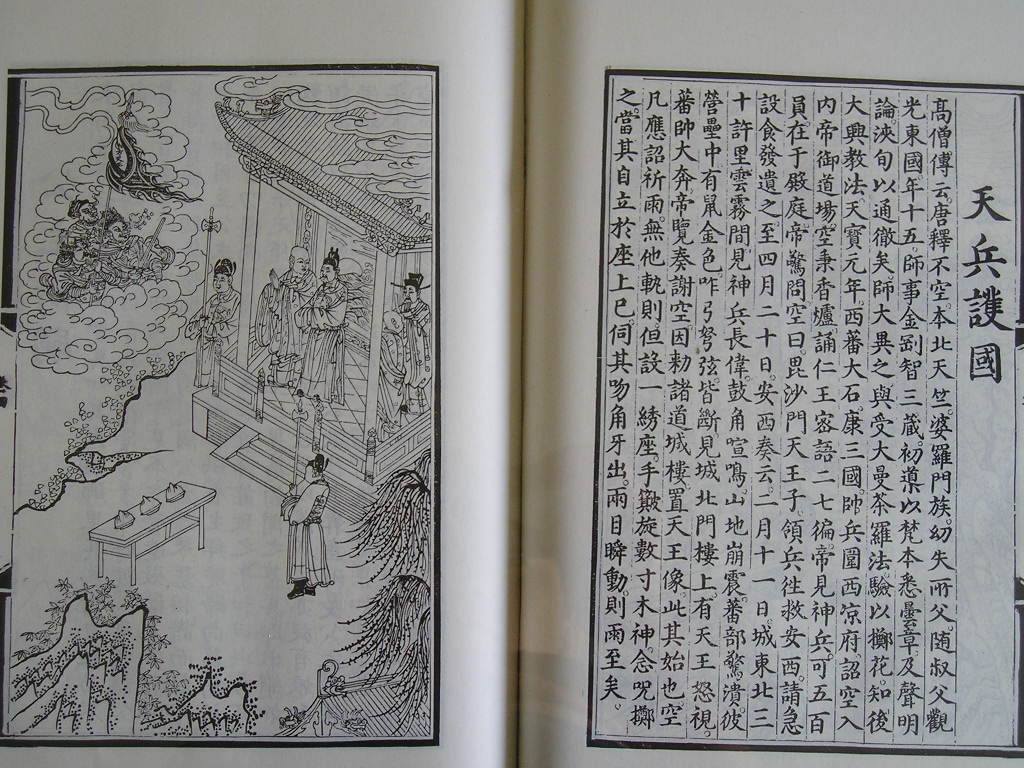 天兵護國
高僧傳云唐釋不空本北天竺婆羅門族幼失所父随叔父觀
光東國年十五師事金剛智三藏初導以梵本悉曇章及聲明
論浹旬以通徹矣師大異之與受大曼茶羅法驗以擲花知後
大興教法天寶元年西蕃大石康三國帥兵圍西凉府詔空入
内帝御道場空秉香爐誦仁王密語二七徧帝見神兵可五百
員在于殿庭帝驚問空曰毘沙門天王子領兵徃救安西請急
設食發遣之至四月二十日安西奏云二月十一日城東北三
十許里雲霧間見神兵長偉鼓角喧鳴山地崩震蕃部驚潰彼
營壘中有鼠金色咋弓弩弦皆斷見城北門樓上有天王怒視
蕃帥大奔帝覽奏謝空因勑諸道城樓置天王像此其始也空
凡應詔祈雨無他軌則但設一綉座手簸旋數寸木神念呪擲
之當其自立於座上已伺其吻角牙出目瞬動則雨至矣